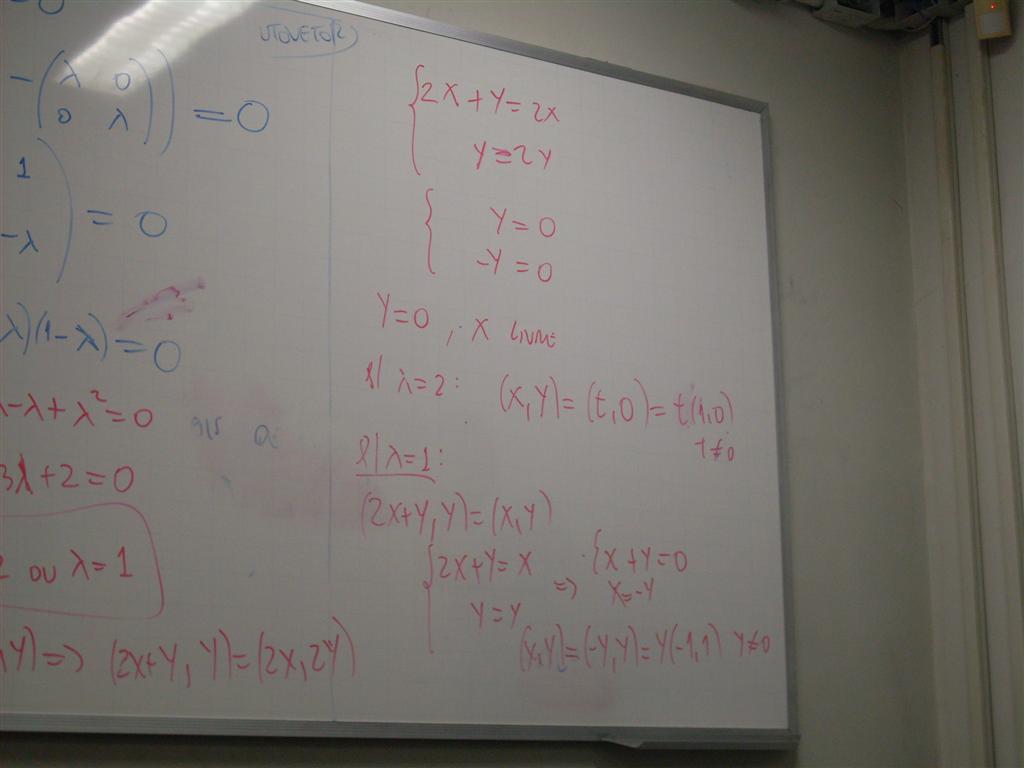 =0
-(λ 0
0 λ)) = 0
1
-λ) = 0
λ)(1-λ)=0
λ-λ+λ²=0
3λ+2=0
2 OU λ=1
,Y)=> (2X+Y, Y)=(2X,2Y)
UTOVETOR
{2X+Y=2X
Y=2Y
{Y=0
-Y=0
Y=0, X LIVRE
P/ λ=2: (X,Y)=(t,0)=t(1,0)
t≠0
P/ λ=1:
(2X+Y,Y)=(X,Y)
{2X+Y=X => {X+Y=0
Y=Y X=-Y
(X,Y)=(-Y,Y)=Y(-1,1) Y≠0